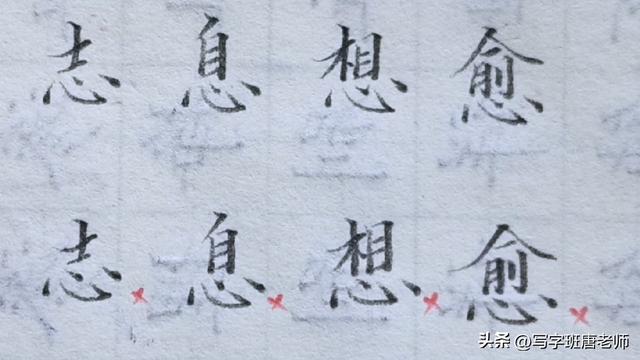 志息想愈
志息想愈
头条 @写字班唐老师